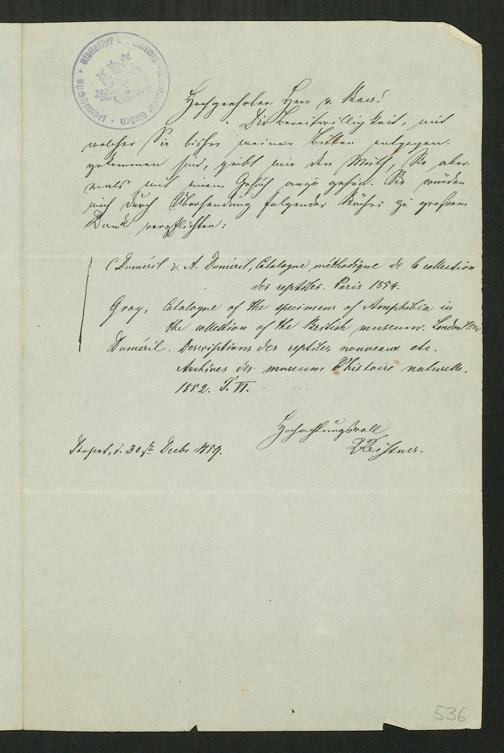 Hochgeehrter Herr v. Baer!
Die Bereitwilligkeit, mit
welcher Sie bisher meinen Bitten entgegen-
gekommen sind, giebt mir den Muth, Sie aber-
mals mit einem Gesuch anzugehen. Sie würden
mich durch Übersendung folgender Bücher zu großem
Dank verpflichten:
Duméril u. A. Duméril, Catalogue méthodique de la collection
des reptiles. Paris 1854.
Gray, Catalogue of the specimens of Amphibia in
the collection of the British museum. London
Duméril. Descriptions des reptiles nouveaux etc.
Archives du museum d'histoire naturelle.
1852. T. VI.
Hochachtungsvoll
Dorpat, d. 30sten Decbr 1859.
536